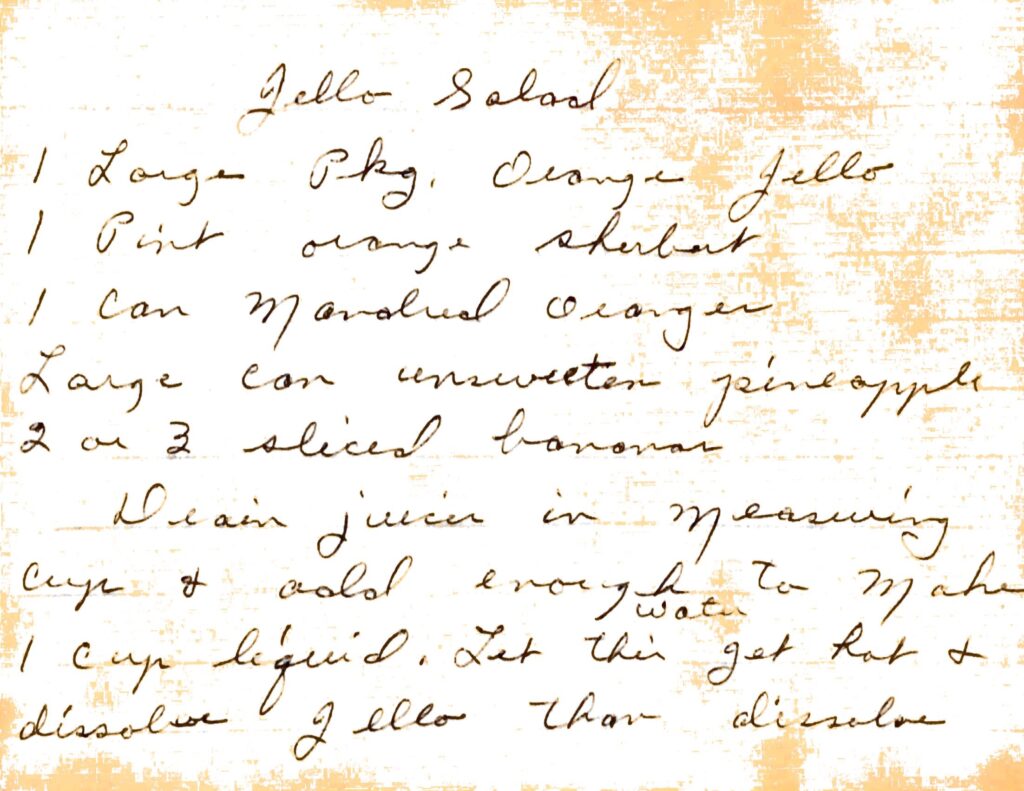 Jello Salad
1 Large Pkg. Orange Jello
1 Pint orange sherbert
1 Can Mandred Oranges
Large can unsweeten pineapple
2 or 3 sliced bananas
Drain juices in measuring
cup & add enough water to make
1 cup liquid. Let this get hot &
dissolve Jello than dissolve